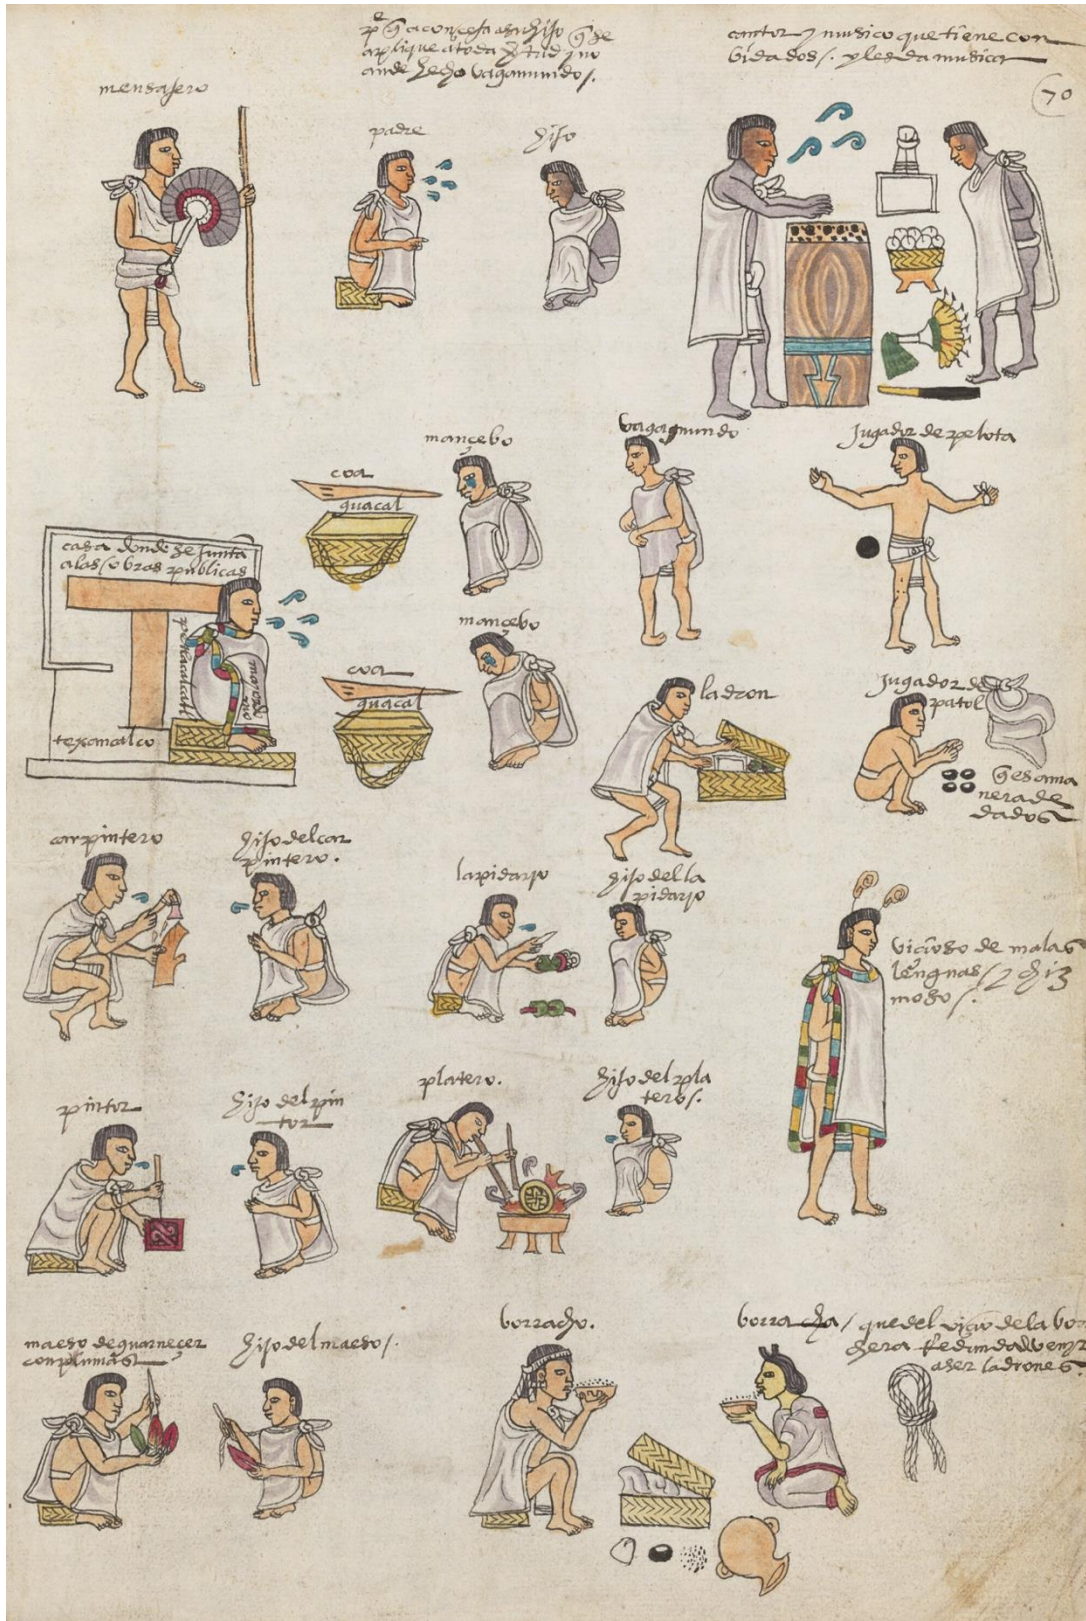 aconseja a su hijo q̃ se
aplique a toda virtud y no
ande hecho vagamundo /.
cantor y musico que tiene con
bidados /. y les da musica
70
mensajero
padre
hijo
mançebo
vagamundo
jugador de pelota
coa
guacal
casa donde se junta
a las obras publicas
petlacalcatl
mayordomo
texancalco
mançebo
coa
guacal
ladron
jugador de
patol
q̃ es a ma
nera de
dados
carpintero
hijo del car
pintero.
lapidario
hijo del la
pidario
viçioso de malas
lenguas / y chiz
moso /.
pintor
hijo del pin
tor
platero.
hijo del pla
tero /.
maeso de guarneçer
con plumas
hijo del maeso /.
borracho.
borracha / que del viçio de la bo
chera venyr
a ser ladrones.